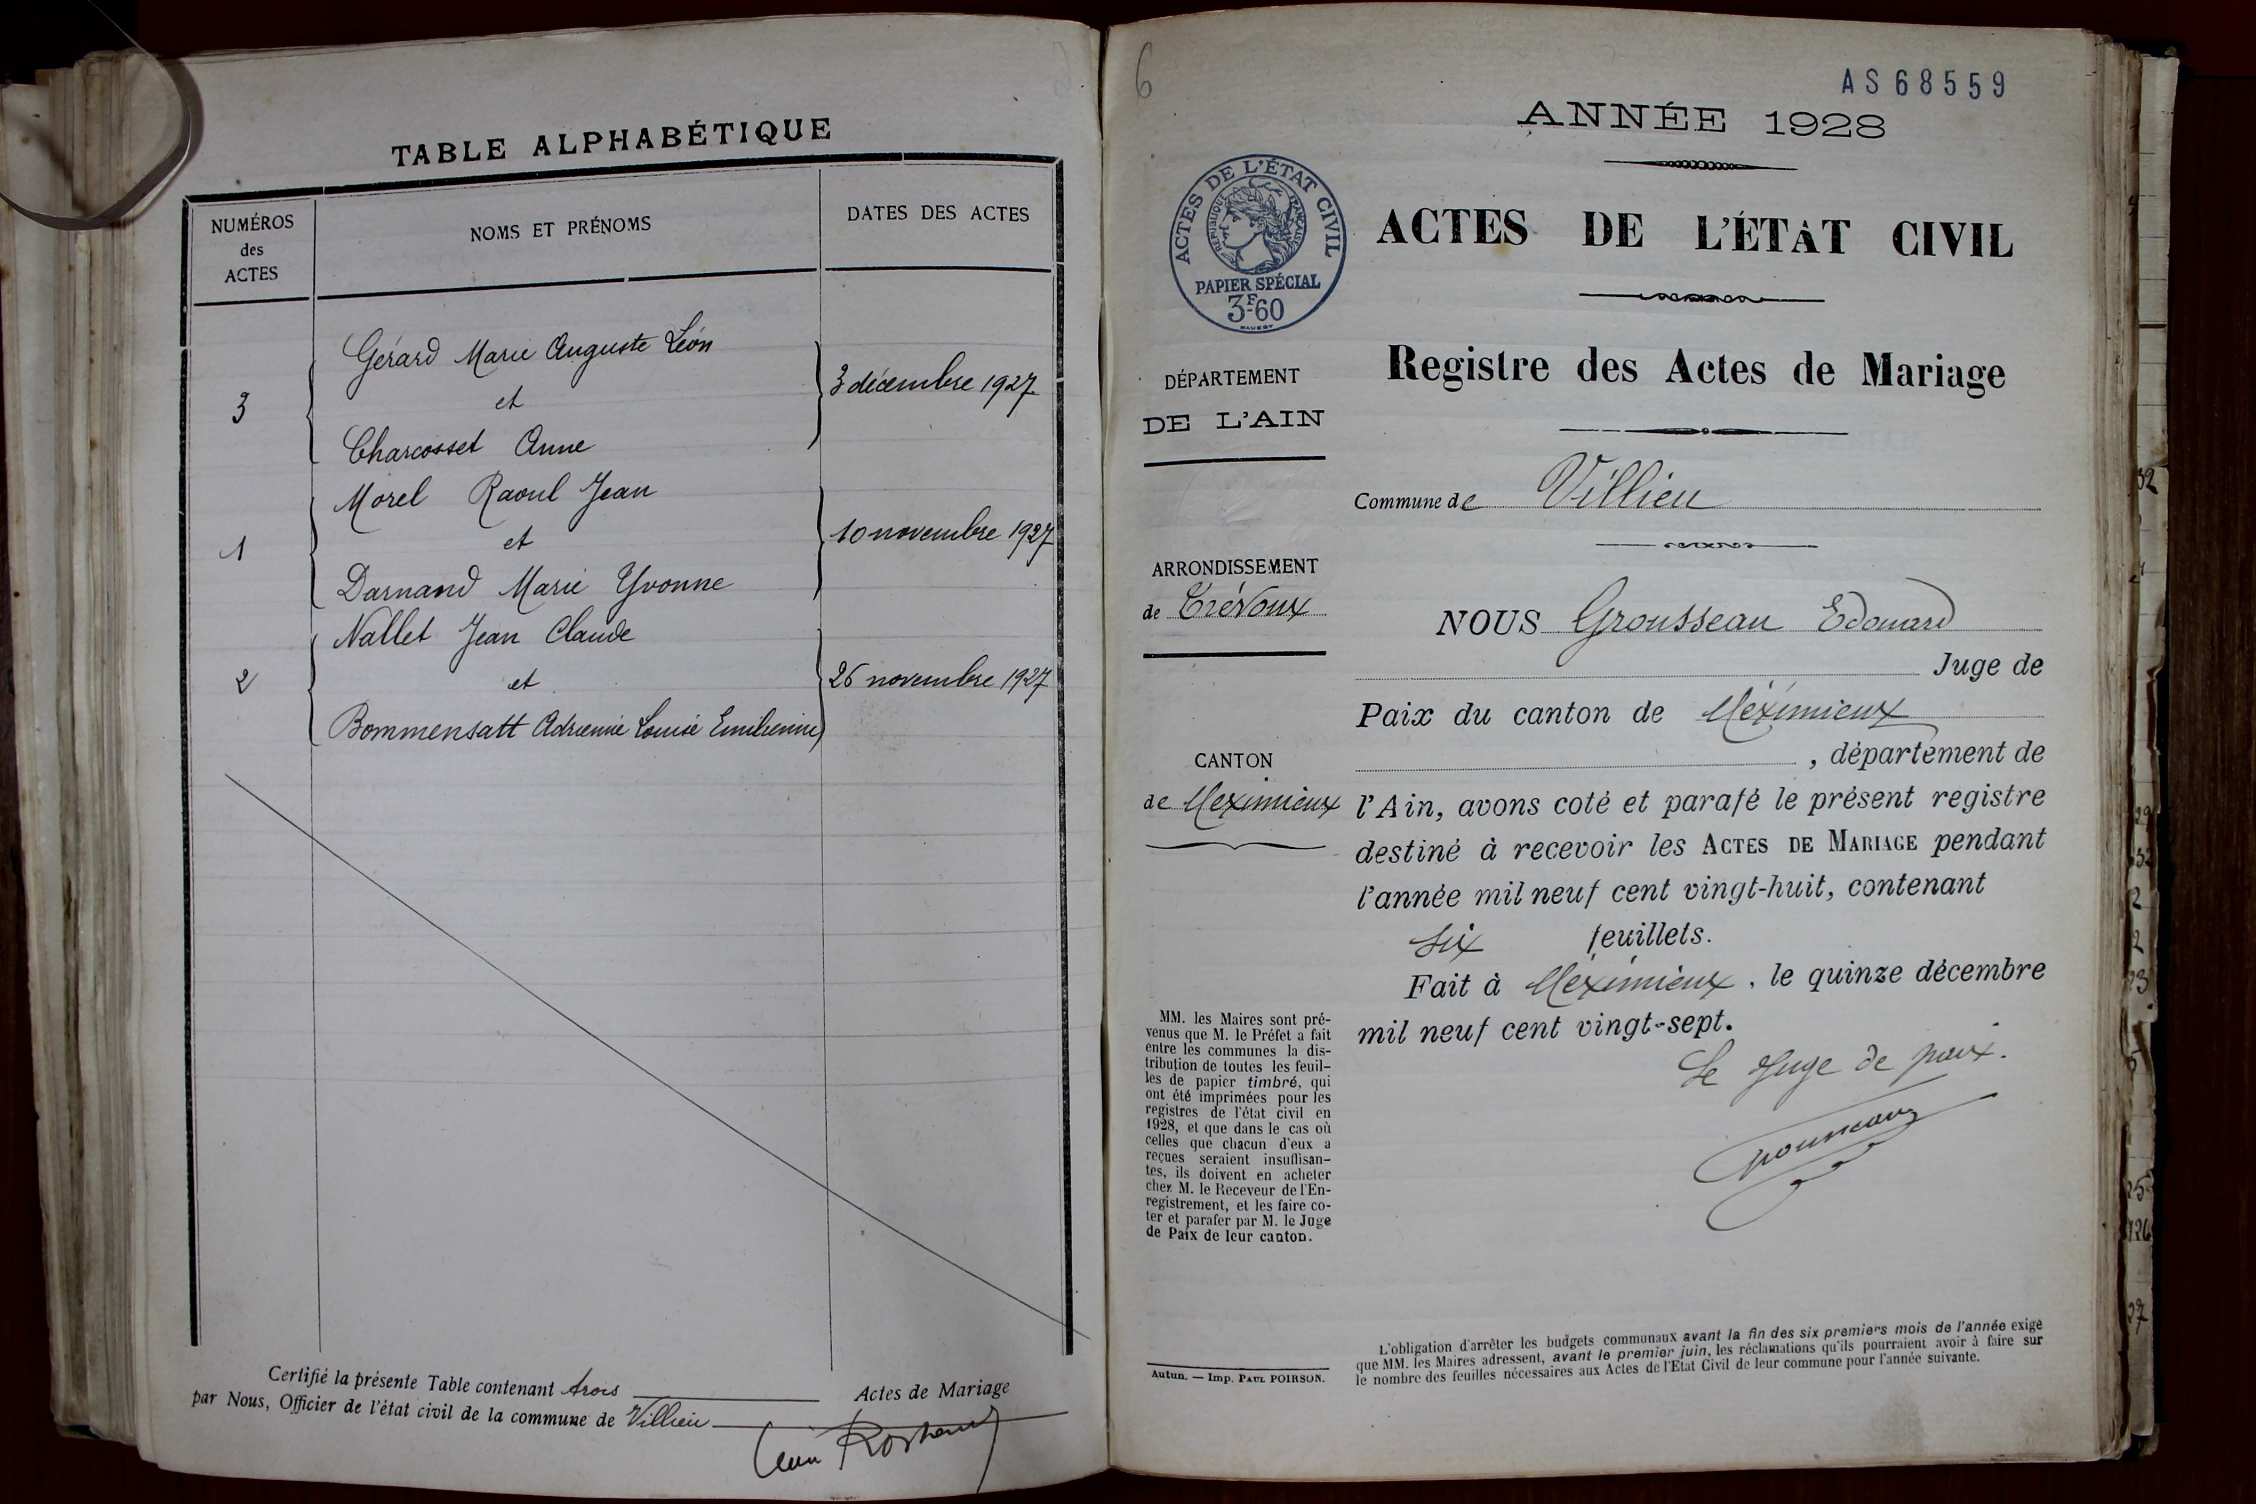 TABLE ALPHABÉTIQUE
NUMÉROS
des
ACTES
NOMS ET PRÉNOMS
DATES DES ACTES
Gérard Marie Auguste Léon
3
et
3 décembre 1927
Charcosset Anne
Morel Raoul Jean
1
et
10 novembre 1927
Darnand Marie Yvonne
Nallet Jean Claude
2
et
26 novembre 1927
Bommensatt Adrienne Louise Emilienne
Certifié la présente Table contenant trois Actes de Mariage
par Nous, Officier de l'état civil de la commune de Villieu
6
AS68559
ANNÉE 1928
ACTES DE L'ÉTAT CIVIL
RÉPUBLIQUE FRANÇAISE
PAPIER SPÉCIAL
3F60
ACTES DE L'ÉTAT CIVIL
Registre des Actes de Mariage
DÉPARTEMENT
DE L'AIN
Commune de Villieu
ARRONDISSEMENT
de Trévoux
NOUS Grousseau Edouard
Juge de
Paix du canton de Méximieux
, département de
CANTON
de Meximieux
l'Ain, avons coté et parafé le présent registre
destiné à recevoir les ACTES DE MARIAGE pendant
l'année mil neuf cent vingt-huit, contenant
six feuillets.
Fait à Méximieux, le quinze décembre
mil neuf cent vingt-sept.
Le Juge de paix.
MM. les Maires sont pré-
venus que M. le Préfet a fait
entre les communes la dis-
tribution de toutes les feuil-
les de papier timbré, qui
ont été imprimées pour les
registres de l'état civil en
1928, et que dans le cas où
celles que chacun d'eux a
reçues seraient insuffisan-
tes, ils doivent en acheter
chez M. le Receveur de l'En-
registrement, et les faire co-
ter et parafer par M. le Juge
de Paix de leur canton.
Autun. — Imp. PAUL POIRSON.
L'obligation d'arrêter les budgets communaux avant la fin des six premiers mois de l'année exige
que MM. les Maires adressent, avant le premier juin, les réclamations qu'ils pourraient avoir à faire sur
le nombre des feuilles nécessaires aux Actes de l'Etat Civil de leur commune pour l'année suivante.